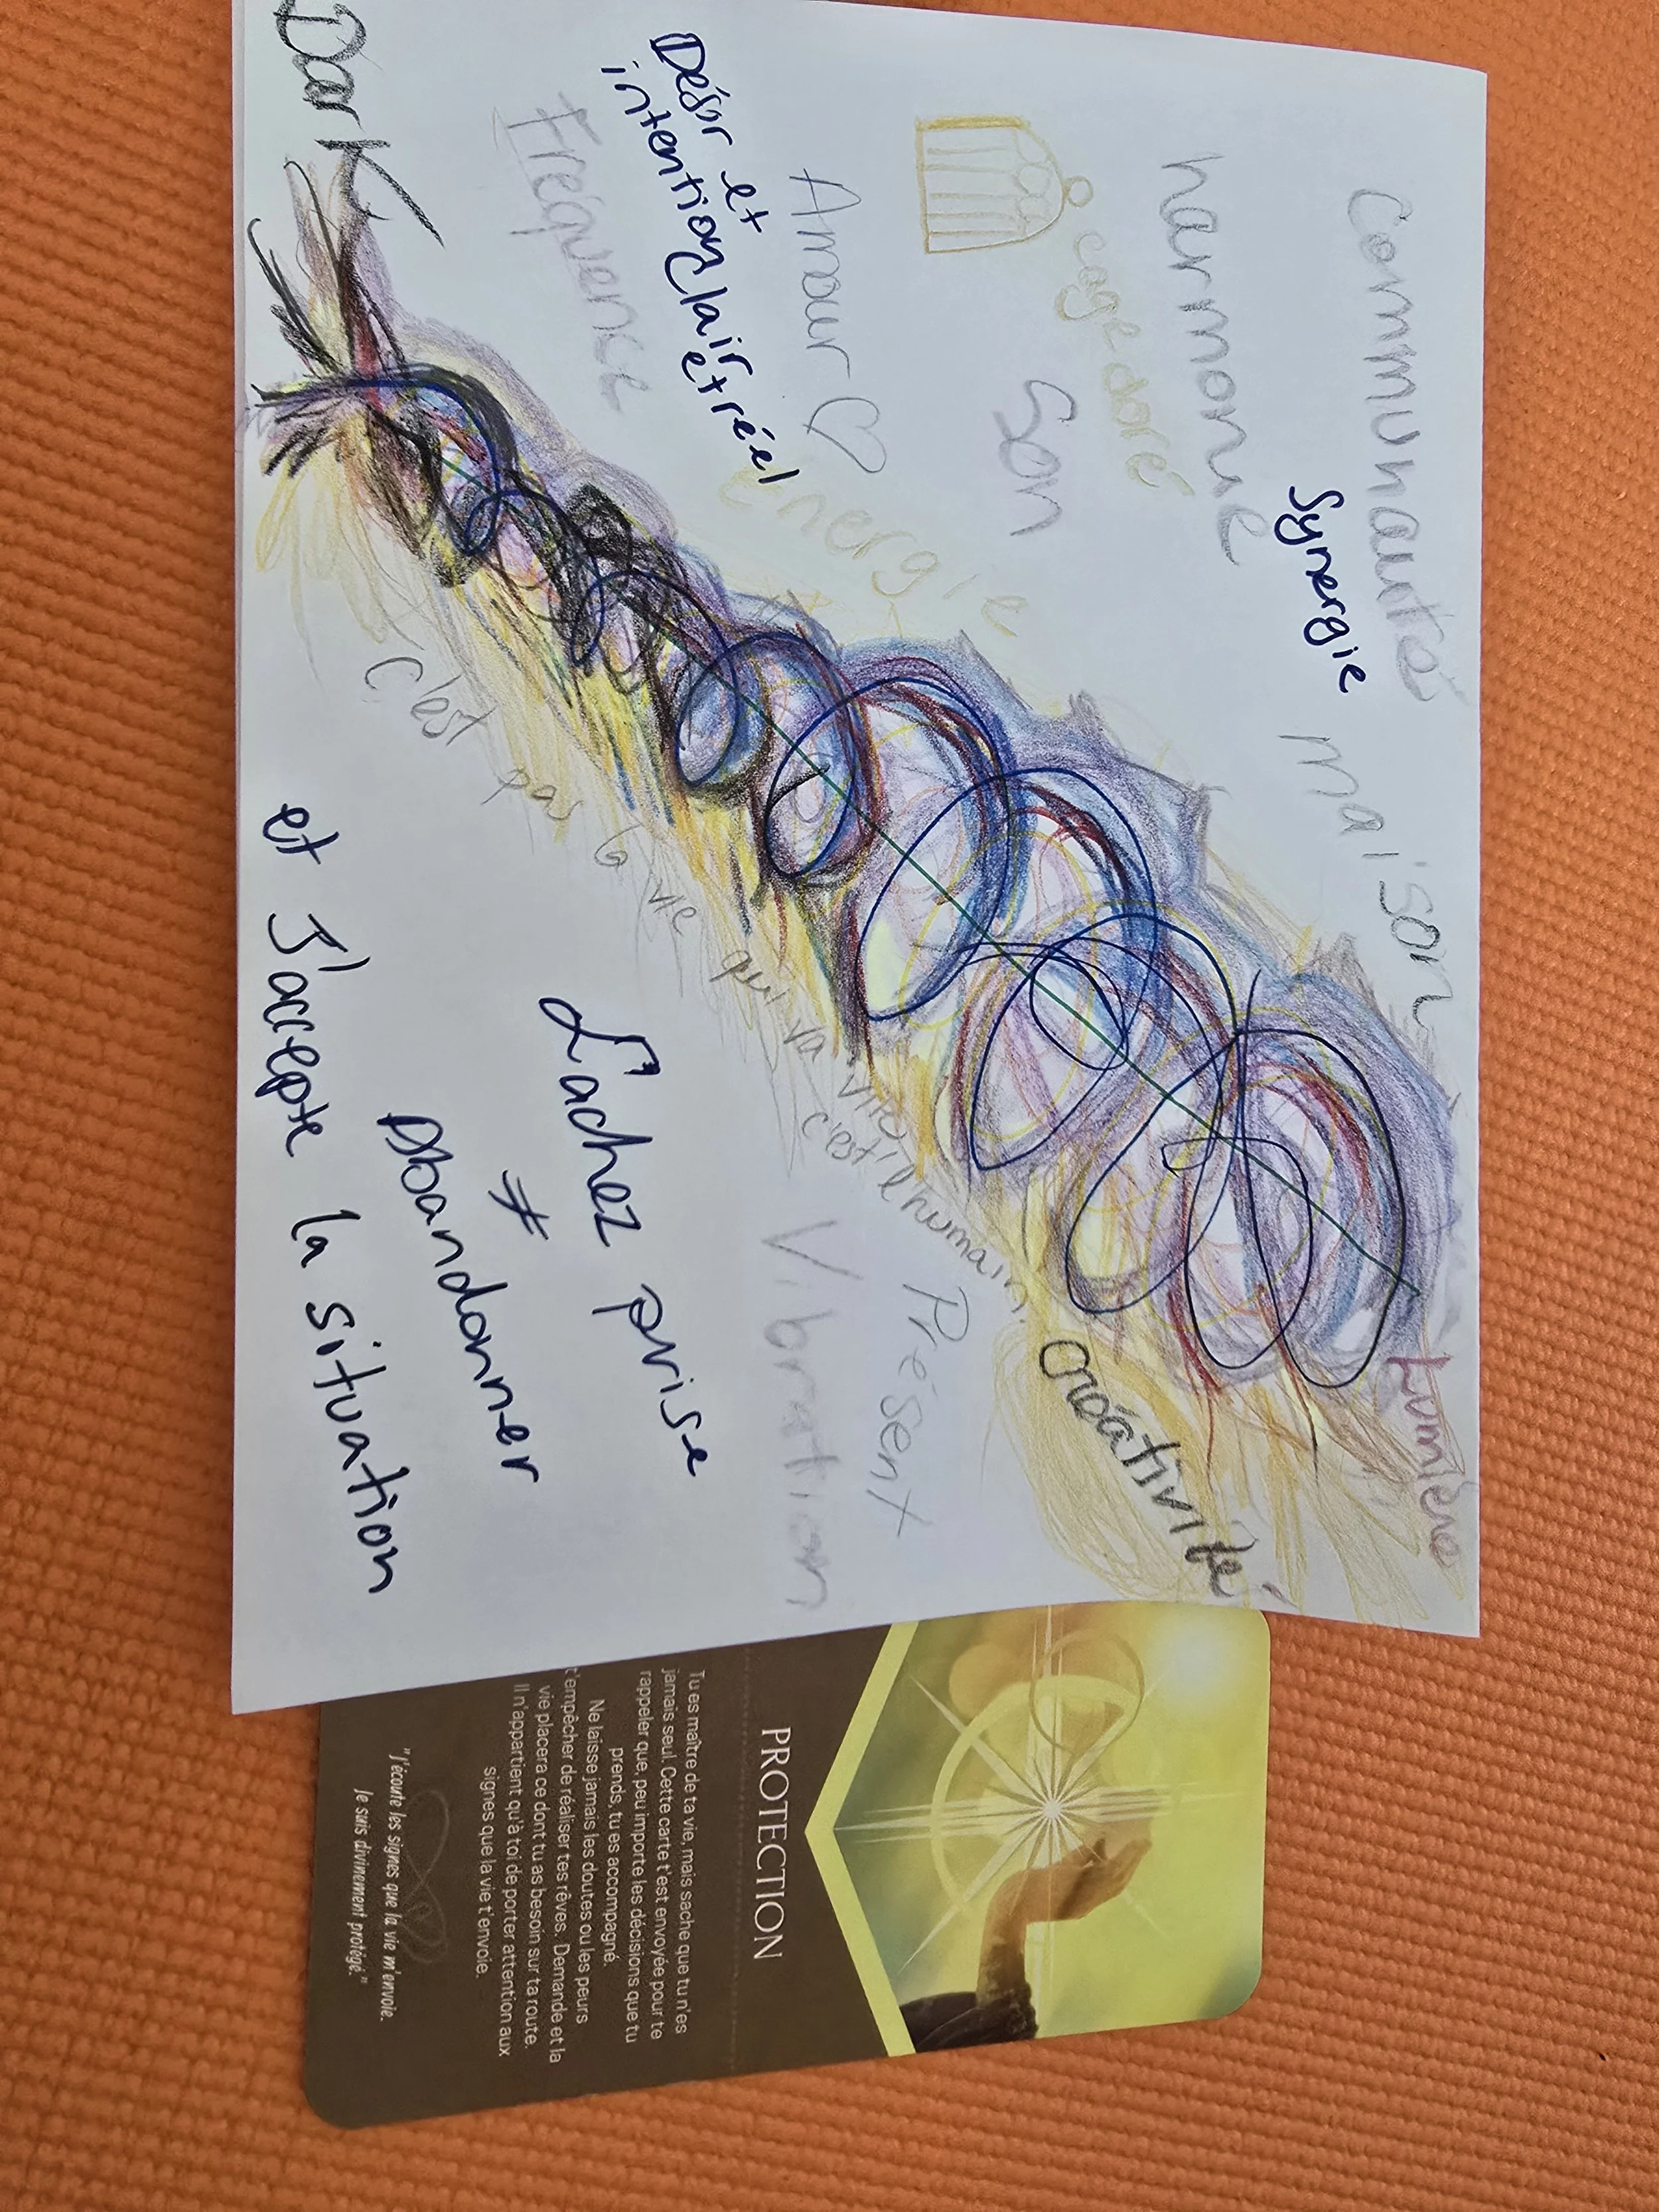 communauté
maison
Lumière
Synergie
harmonie
cage doré
Son
créativité
Amour ♡
énergie
Présent
Désir et
intention clair
et réel
Fréquence
Vibration
c'est pas la vie qui va vite
c'est l'humain
Lachez prise
≠
Abandonner
et J'accepte la situation
Dark
PROTECTION
Tu es maître de ta vie, mais sache que tu n'es
jamais seul. Cette carte t'est envoyée pour te
rappeler que, peu importe les décisions que tu
prends, tu es accompagné.
Ne laisse jamais les doutes ou les peurs
t'empêcher de réaliser tes rêves. Demande et la
vie placera ce dont tu as besoin sur ta route.
Il n'appartient qu'à toi de porter attention aux
signes que la vie t'envoie.
"J'écoute les signes que la vie m'envoie.
Je suis divinement protégé."